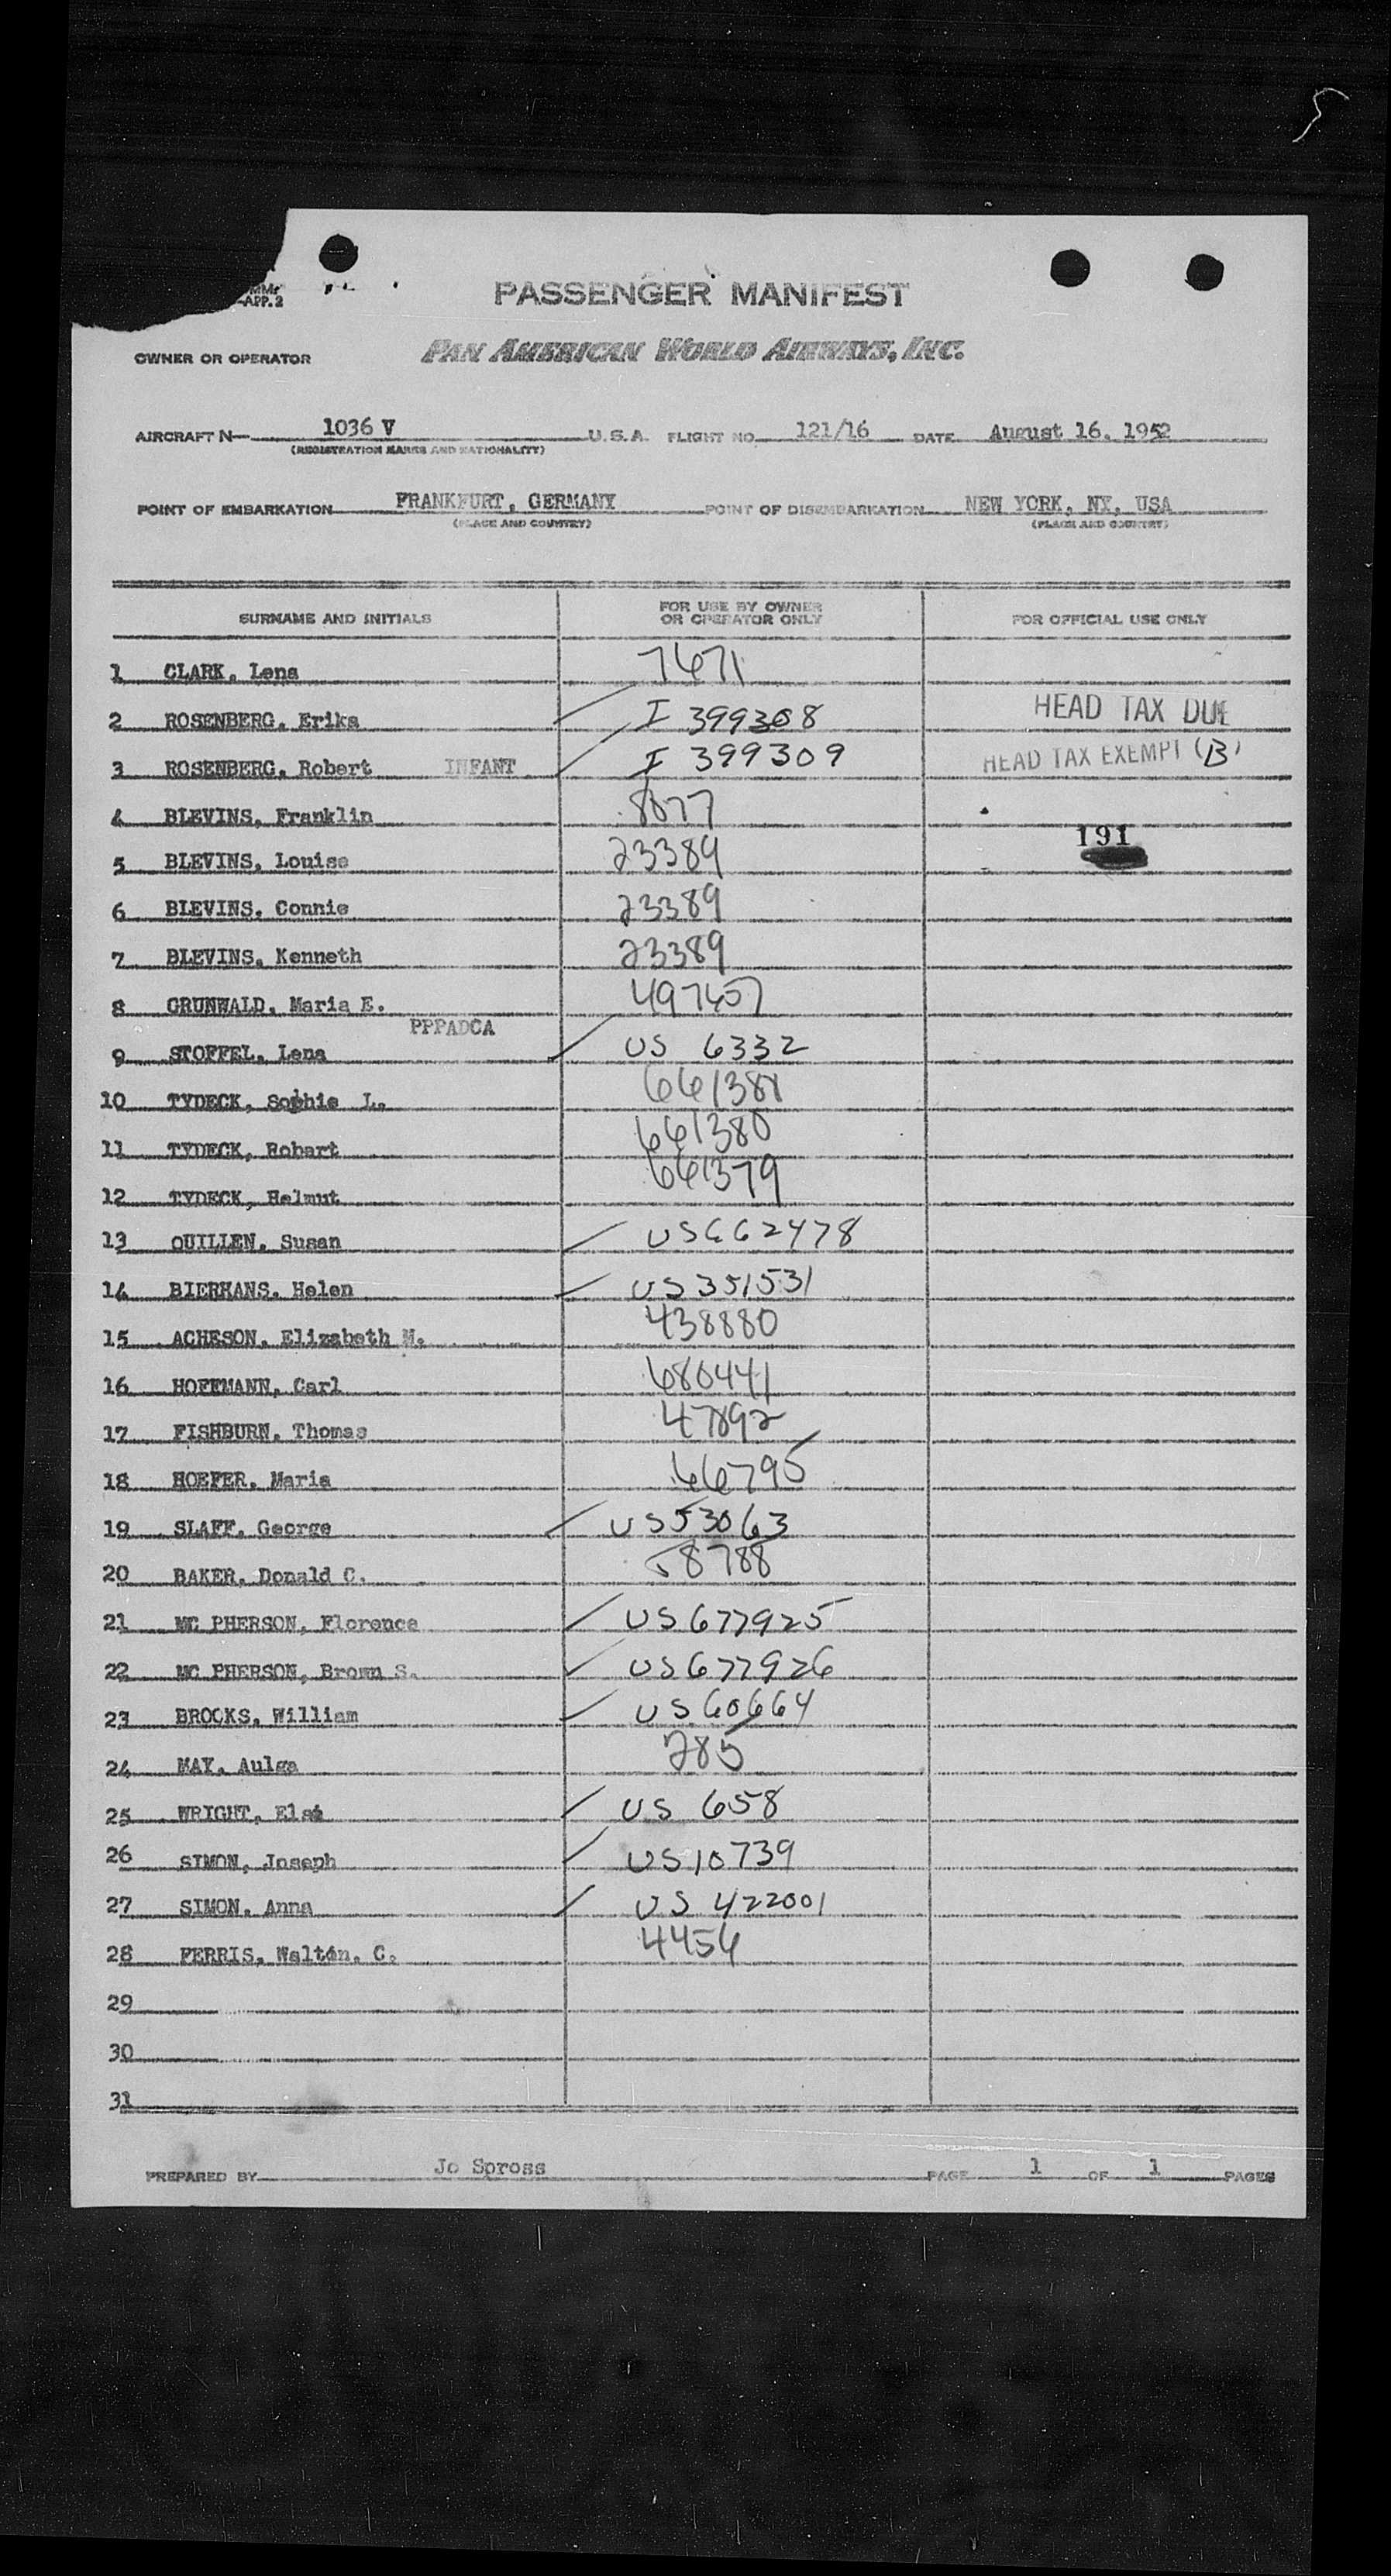 -APP. 2
PASSENGER MANIFEST
OWNER OR OPERATOR PAN AMERICAN WORLD AIRWAYS, INC.
AIRCRAFT N— 1036 V U. S. A. FLIGHT NO. 121/16 DATE August 16. 1952
(REGISTRATION MARKS AND NATIONALITY)
POINT OF EMBARKATION FRANKFURT, GERMANY POINT OF DISEMBARKATION NEW YORK, NY, USA
(PLACE AND COUNTRY) (PLACE AND COUNTRY)
SURNAME AND INITIALS FOR USE BY OWNER OR OPERATOR ONLY FOR OFFICIAL USE ONLY
1 CLARK, Lena 7671
2 ROSENBERG, Erika I 399308 HEAD TAX DUE
3 ROSENBERG, Robert INFANT I 399309 HEAD TAX EXEMPT (B)
4 BLEVINS, Franklin 8877
5 BLEVINS, Louise 23389 191
6 BLEVINS, Connie 23389
7 BLEVINS, Kenneth 23389
8 GRUNWALD, Maria E. 497657
PPPADCA
9 STOFFEL, Lena US 6332
10 TYDECK, Sophie L. 661381
11 TYDECK, Robert 661380
12 TYDECK, Helmut 661379
13 QUILLEN, Susan US662478
14 BIERHANS, Helen US351531
15 ACHESON, Elizabeth M. 438880
16 HOFFMANN, Carl 680441
17 FISHBURN, Thomas 47892
18 HOEFER, Maria 66795
19 SLAFF, George US53063
20 BAKER, Donald C. 58788
21 MC PHERSON, Florence US677925
22 MC PHERSON, Brown S. US677926
23 BROOKS, William US60664
24 MAY, Aulga 285
25 WRIGHT, Else US 658
26 SIMON, Joseph US10739
27 SIMON, Anna US 422001
28 FERRIS, Walton, C. 4456
29
30
31
PREPARED BY Jo Spross PAGE 1 OF 1 PAGES